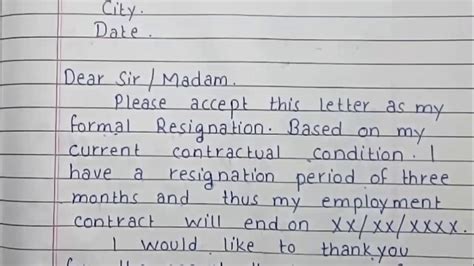 City.
Date.
Dear Sir/Madam.
Please accept this letter as my
formal Resignation. Based on my
current contractual condition. I
have a resignation period of three
months and thus my employment
contract will end on XX/XX/XXXX.
I would like to thank you